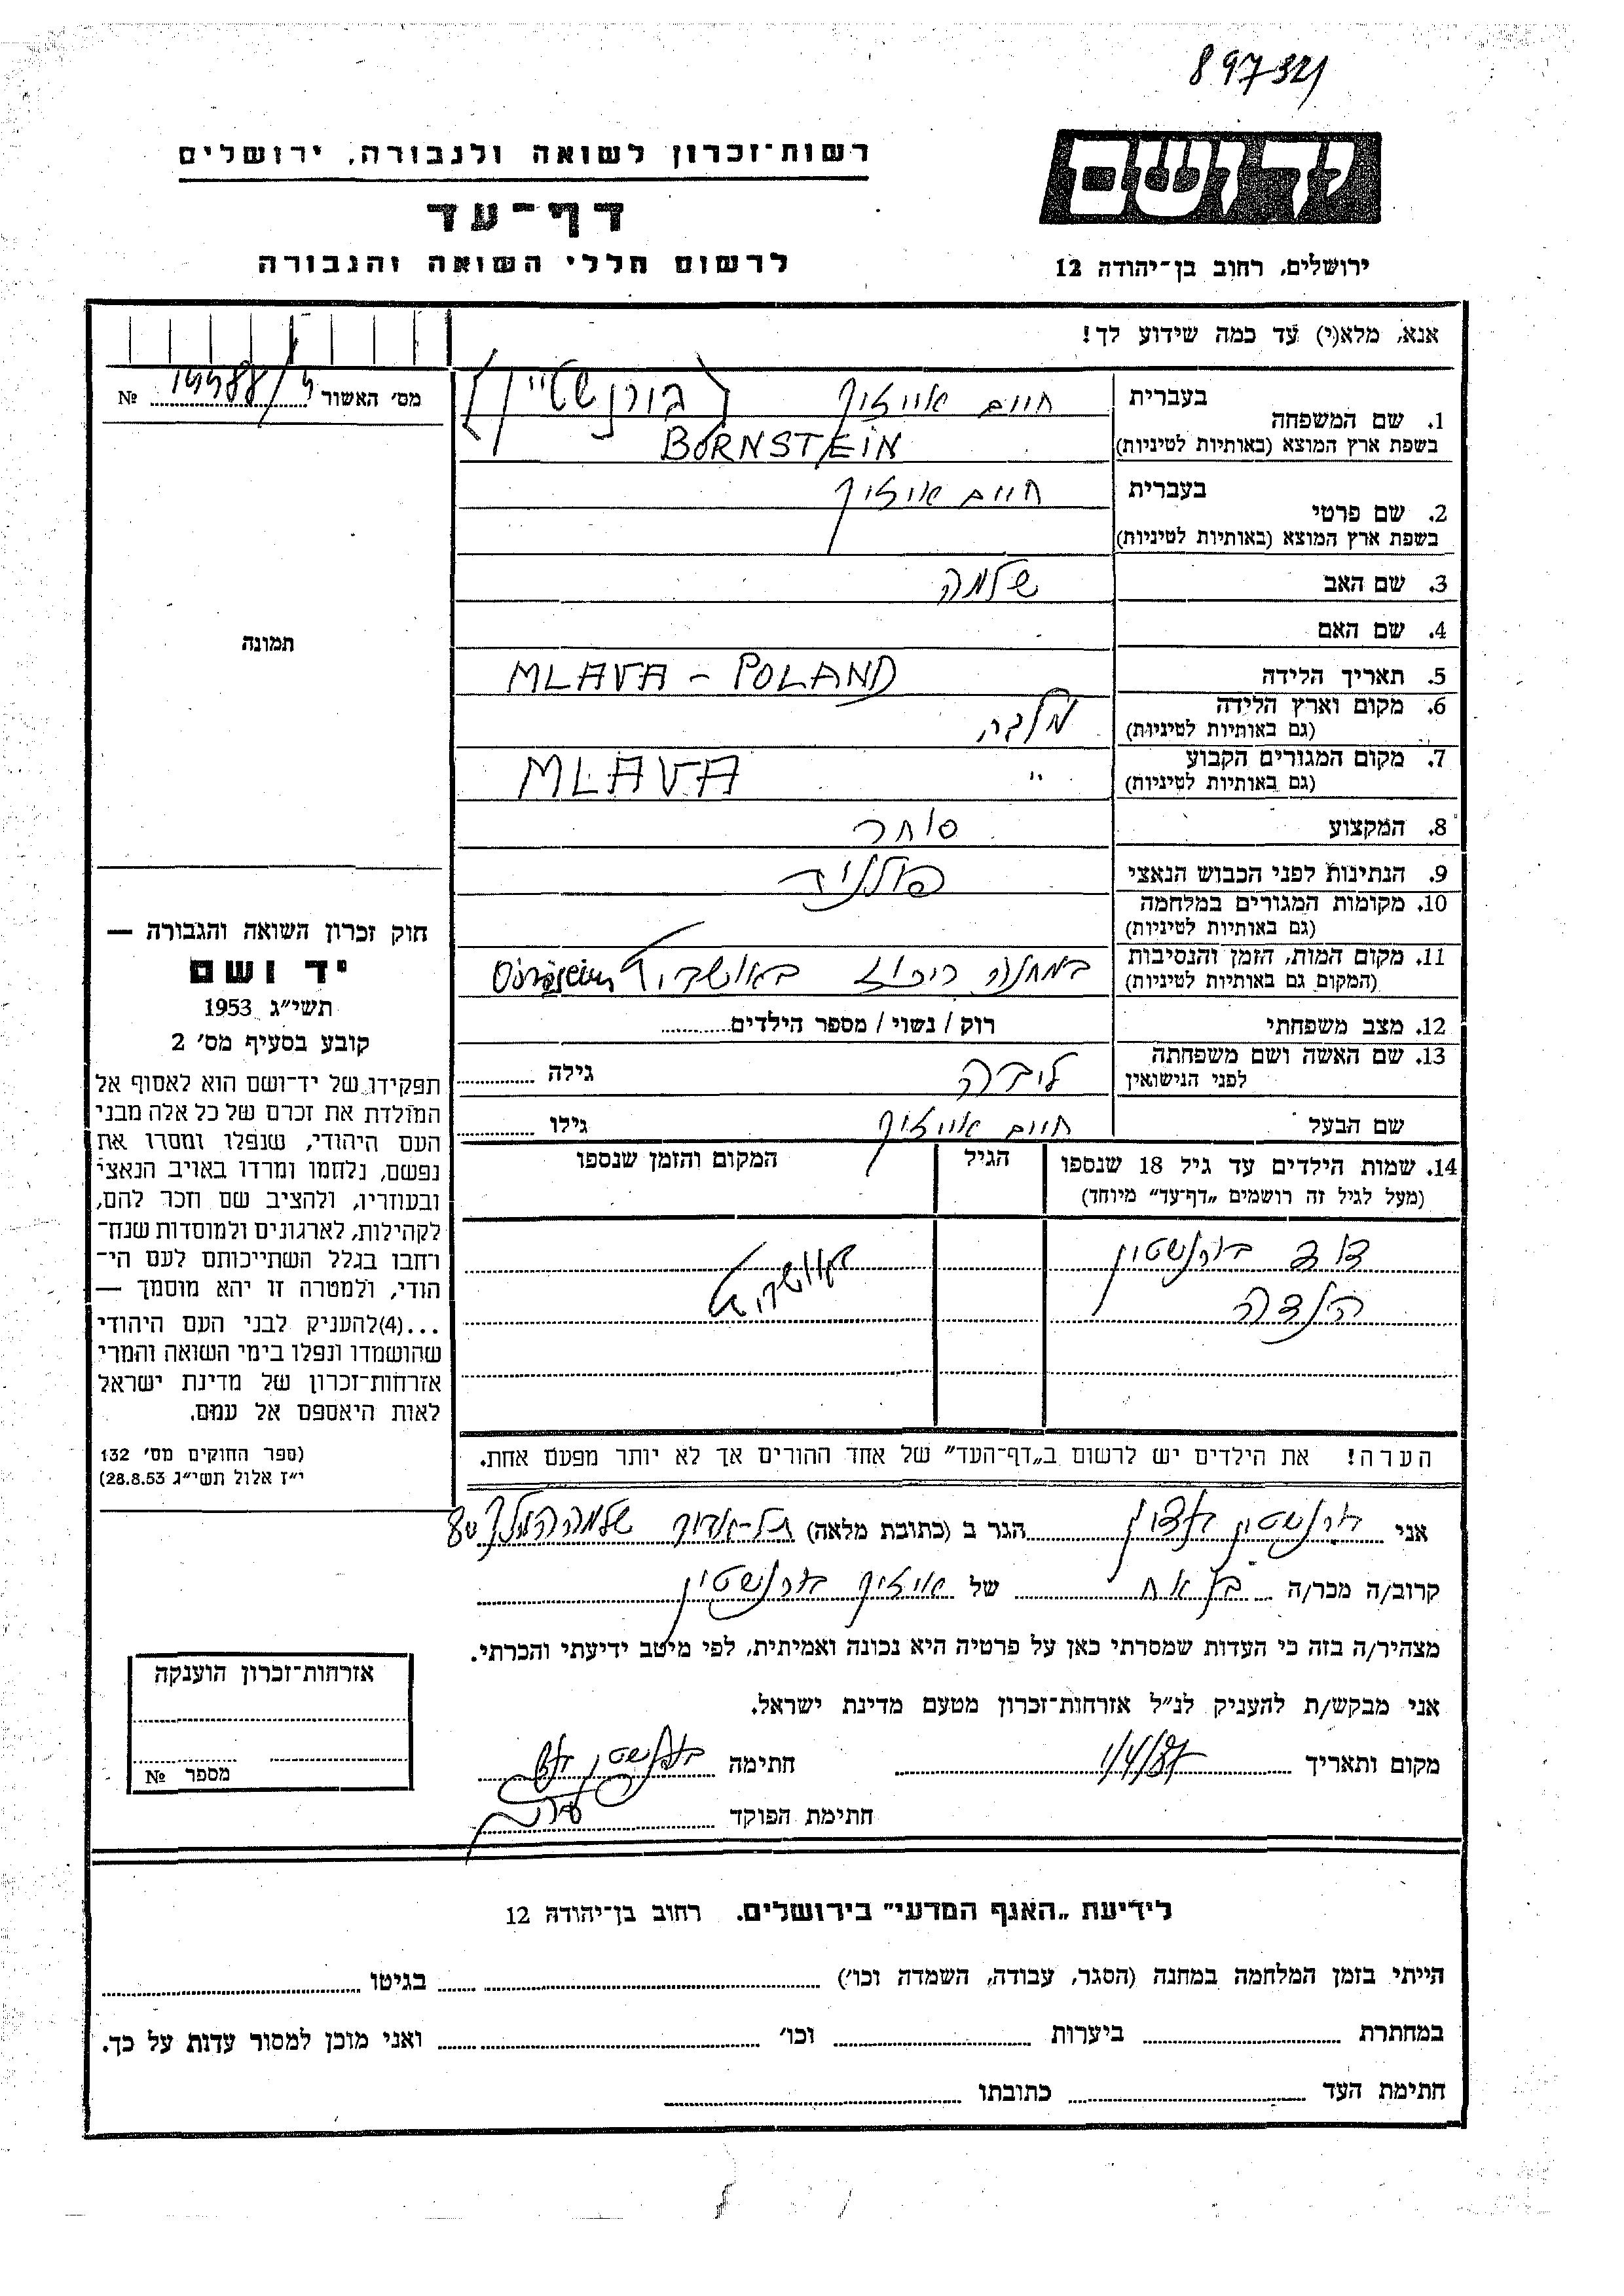 רשות־זכרון לשואה ולגבורה, ירושלים
יד ושם
דף־עד
לרשום חללי השואה והגבורה
ירושלים, רחוב בן־יהודה 12
אנא, מלא(י) עד כמה שידוע לך!
מס' האשור № 
בעברית
1. שם המשפחה חיים אייזיק (בורנשטיין)
בשפת ארץ המוצא (באותיות לטיניות) BORNSTEIN
בעברית חיים אייזיק
2. שם פרטי
בשפת ארץ המוצא (באותיות לטיניות)
3. שם האב שלמה
4. שם האם
תמונה
5. תאריך הלידה MLAVA - POLAND
6. מקום וארץ הלידה מלבה
(גם באותיות לטיניות)
7. מקום המגורים הקבוע " MLAVA
(גם באותיות לטיניות)
8. המקצוע סוחר
9. הנתינות לפני הכבוש הנאצי פולנית
10. מקומות המגורים במלחמה
(גם באותיות לטיניות)
11. מקום המות, הזמן והנסיבות במחנה ריכוז באושביץ
(המקום גם באותיות לטיניות)
12. מצב משפחתי רוק / נשוי / מספר הילדים
13. שם האשה ושם משפחתה גילה
לפני הנישואין
שם הבעל חיים אייזיק גילו
14. שמות הילדים עד גיל 18 שנספו הגיל המקום והזמן שנספו
(מעל לגיל זה רושמים „דף־עד" מיוחד)
דוד בורנשטין באושביץ
הינדה
הערה! את הילדים יש לרשום ב„דף־העד" של אחד ההורים אך לא יותר מפעם אחת.
חוק זכרון השואה והגבורה —
יד ושם
תשי"ג 1953
קובע בסעיף מס' 2
תפקידו של יד־ושם הוא לאסוף אל
המולדת את זכרם של כל אלה מבני
העם היהודי, שנפלו ומסרו את
נפשם, נלחמו ומרדו באויב הנאצי
ובעוזריו, ולהציב שם וזכר להם,
לקהילות, לארגונים ולמוסדות שנח־
רחבו בגלל השתייכותם לעם הי־
הודי, ולמטרה זו יהא מוסמך —
...(4)להעניק לבני העם היהודי
שהושמדו ונפלו בימי השואה והמרי
אזרחות־זכרון של מדינת ישראל
לאות היאספם אל עמם.
(ספר החוקים מס' 132
י"ז אלול תשי"ג 28.8.53)
אני בורנשטין הגר ב (כתובת מלאה) תל-אביב שלמה המלך 80
קרוב/ה מכר/ה בן אח של אייזיק בורנשטין
מצהיר/ה בזה כי העדות שמסרתי כאן על פרטיה היא נכונה ואמיתית, לפי מיטב ידיעתי והכרתי.
אני מבקש/ת להעניק לנ"ל אזרחות־זכרון מטעם מדינת ישראל.
מקום ותאריך 1/4/87 חתימה בורנשטין
חתימת הפוקד
אזרחות־זכרון הוענקה
מספר №
לידיעת „האגף המדעי" בירושלים. רחוב בן־יהודה 12
הייתי בזמן המלחמה במחנה (הסגר, עבודה, השמדה וכו') בגיטו
במחתרת ביערות וכו' ואני מוכן למסור עדות על כך.
חתימת העד כתובתו